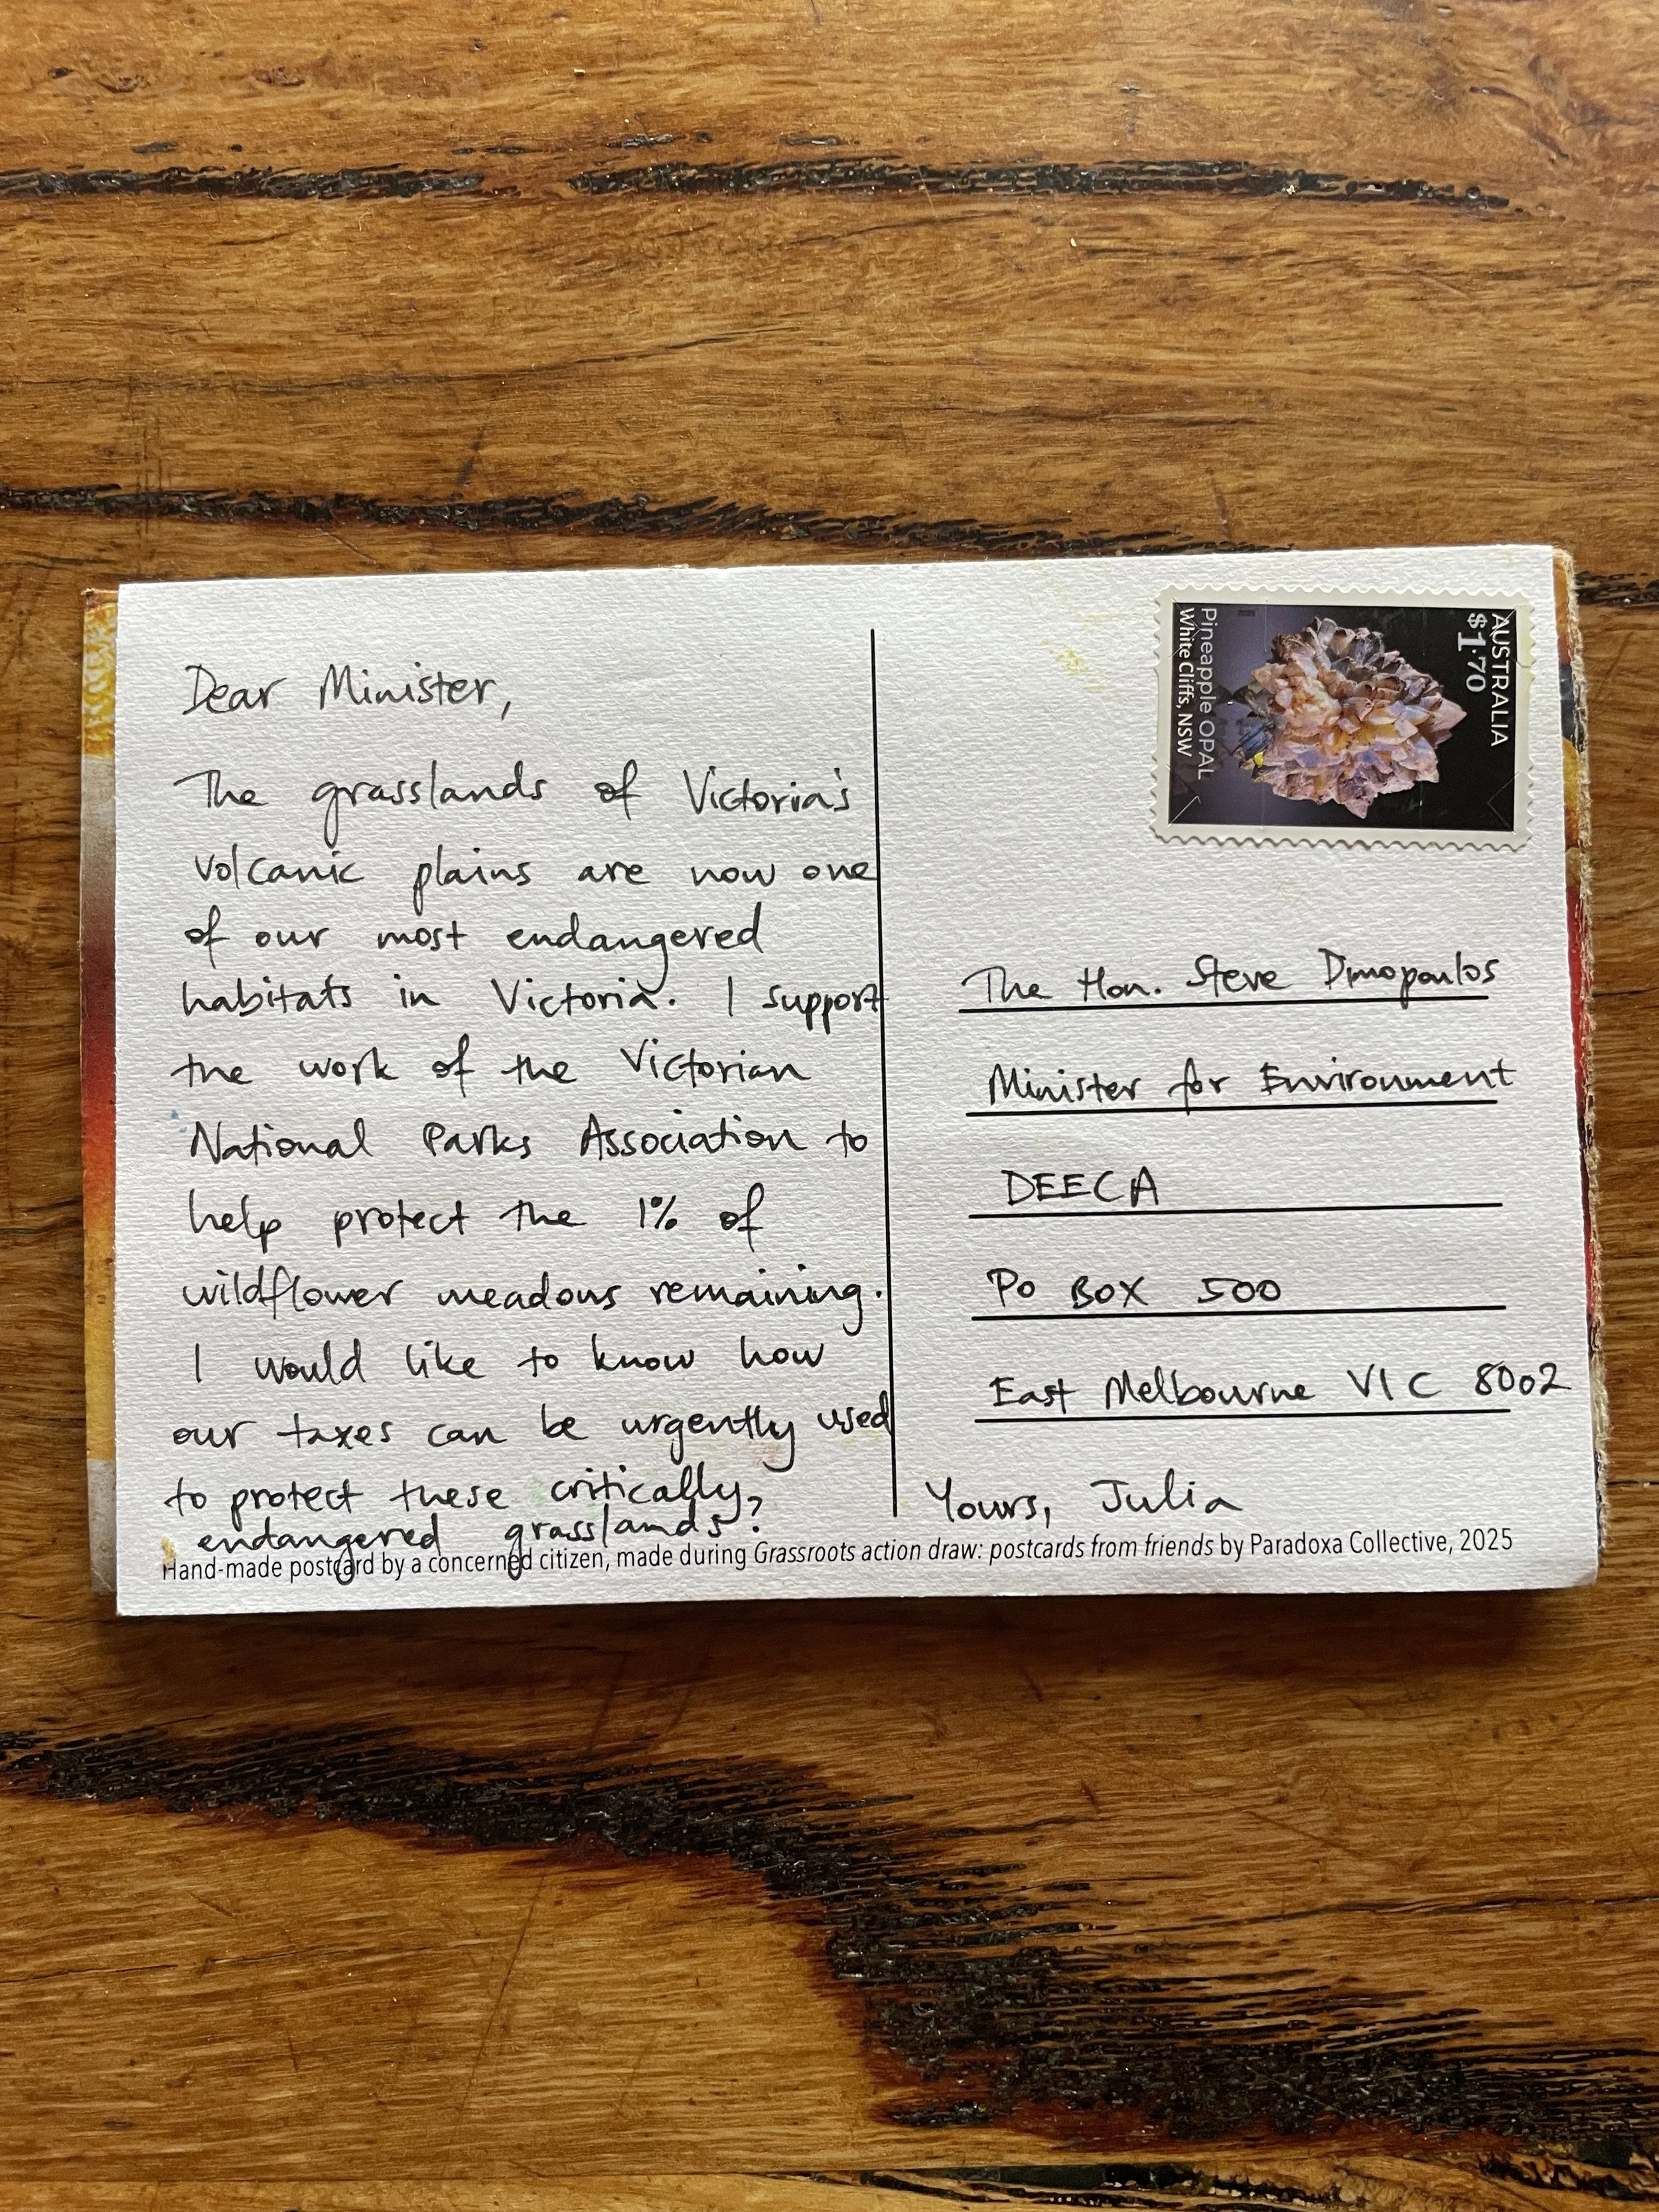 Dear Minister,
The grasslands of Victoria's
volcanic plains are now one
of our most endangered
habitats in Victoria. I support
the work of the Victorian
National Parks Association to
help protect the 1% of
wildflower meadows remaining.
I would like to know how
our taxes can be urgently used
to protect these critically
endangered grasslands?
AUSTRALIA
$1.70
Pineapple OPAL
White Cliffs, NSW
The Hon. Steve Dimopoulos
Minister for Environment
DEECA
PO BOX 500
East Melbourne VIC 8002
Yours, Julia
Hand-made postcard by a concerned citizen, made during Grassroots action draw: postcards from friends by Paradoxa Collective, 2025